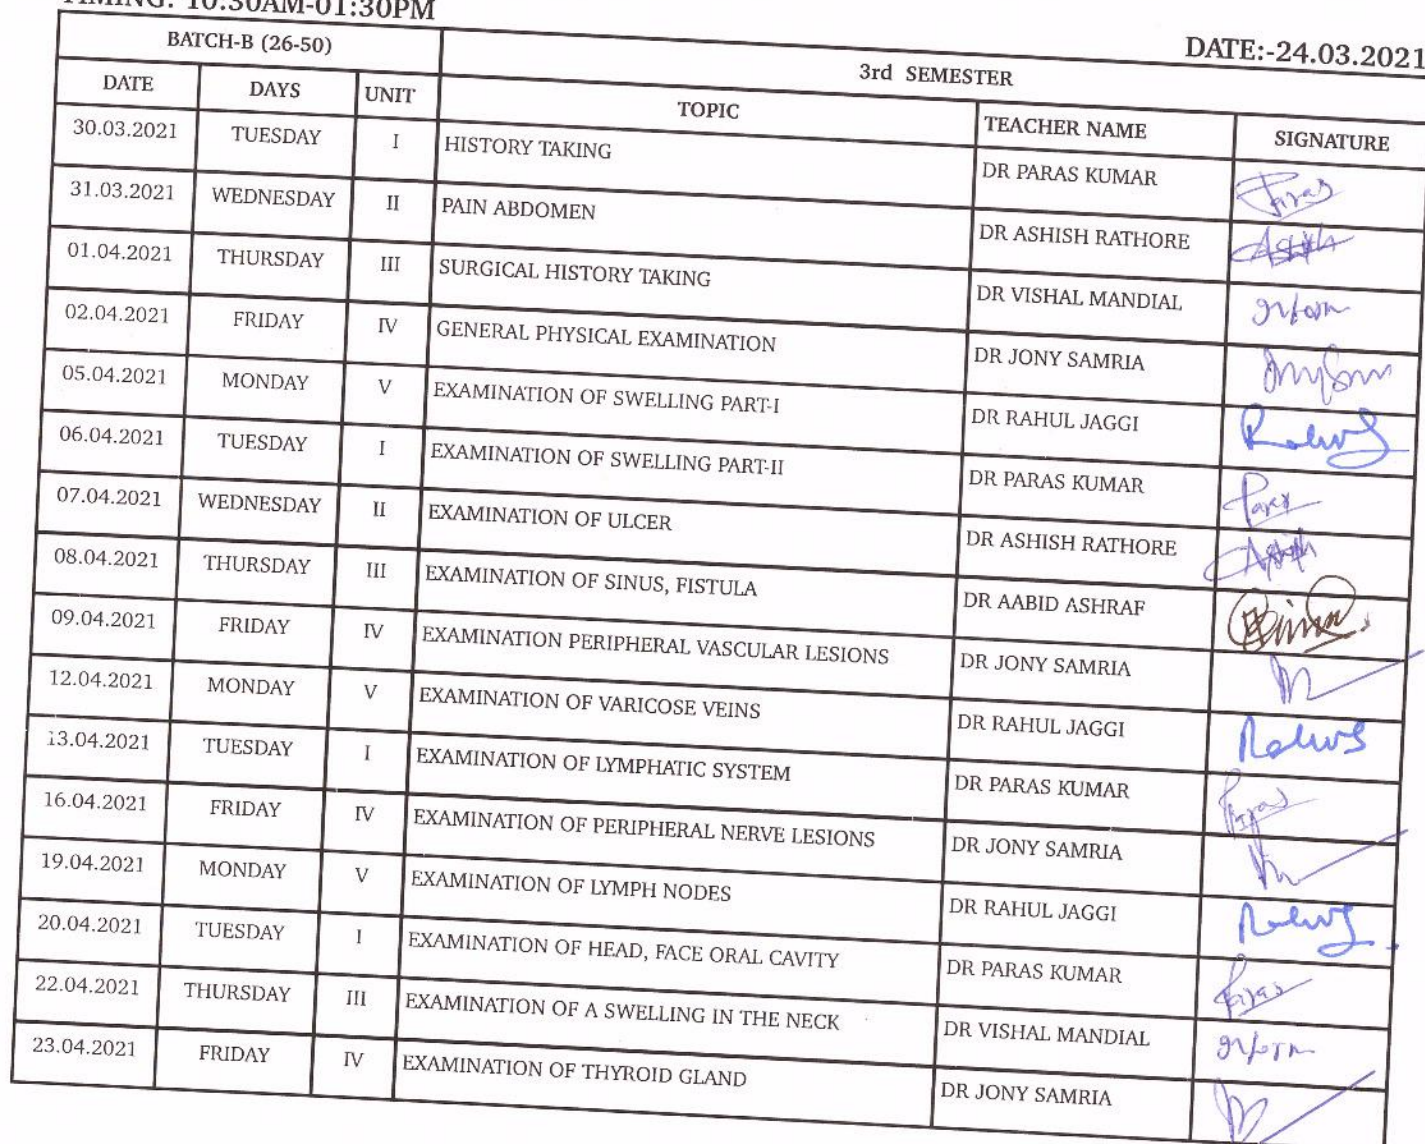 TIMING: 10:30AM-01:30PM
DATE:-24.03.2021
BATCH-B (26-50) 3rd SEMESTER
DATE DAYS UNIT TOPIC TEACHER NAME SIGNATURE
30.03.2021 TUESDAY I HISTORY TAKING DR PARAS KUMAR Paras
31.03.2021 WEDNESDAY II PAIN ABDOMEN DR ASHISH RATHORE
01.04.2021 THURSDAY III SURGICAL HISTORY TAKING DR VISHAL MANDIAL
02.04.2021 FRIDAY IV GENERAL PHYSICAL EXAMINATION DR JONY SAMRIA
05.04.2021 MONDAY V EXAMINATION OF SWELLING PART-I DR RAHUL JAGGI
06.04.2021 TUESDAY I EXAMINATION OF SWELLING PART-II DR PARAS KUMAR Paras
07.04.2021 WEDNESDAY II EXAMINATION OF ULCER DR ASHISH RATHORE
08.04.2021 THURSDAY III EXAMINATION OF SINUS, FISTULA DR AABID ASHRAF
09.04.2021 FRIDAY IV EXAMINATION PERIPHERAL VASCULAR LESIONS DR JONY SAMRIA
12.04.2021 MONDAY V EXAMINATION OF VARICOSE VEINS DR RAHUL JAGGI
13.04.2021 TUESDAY I EXAMINATION OF LYMPHATIC SYSTEM DR PARAS KUMAR Paras
16.04.2021 FRIDAY IV EXAMINATION OF PERIPHERAL NERVE LESIONS DR JONY SAMRIA
19.04.2021 MONDAY V EXAMINATION OF LYMPH NODES DR RAHUL JAGGI
20.04.2021 TUESDAY I EXAMINATION OF HEAD, FACE ORAL CAVITY DR PARAS KUMAR Paras
22.04.2021 THURSDAY III EXAMINATION OF A SWELLING IN THE NECK DR VISHAL MANDIAL
23.04.2021 FRIDAY IV EXAMINATION OF THYROID GLAND DR JONY SAMRIA